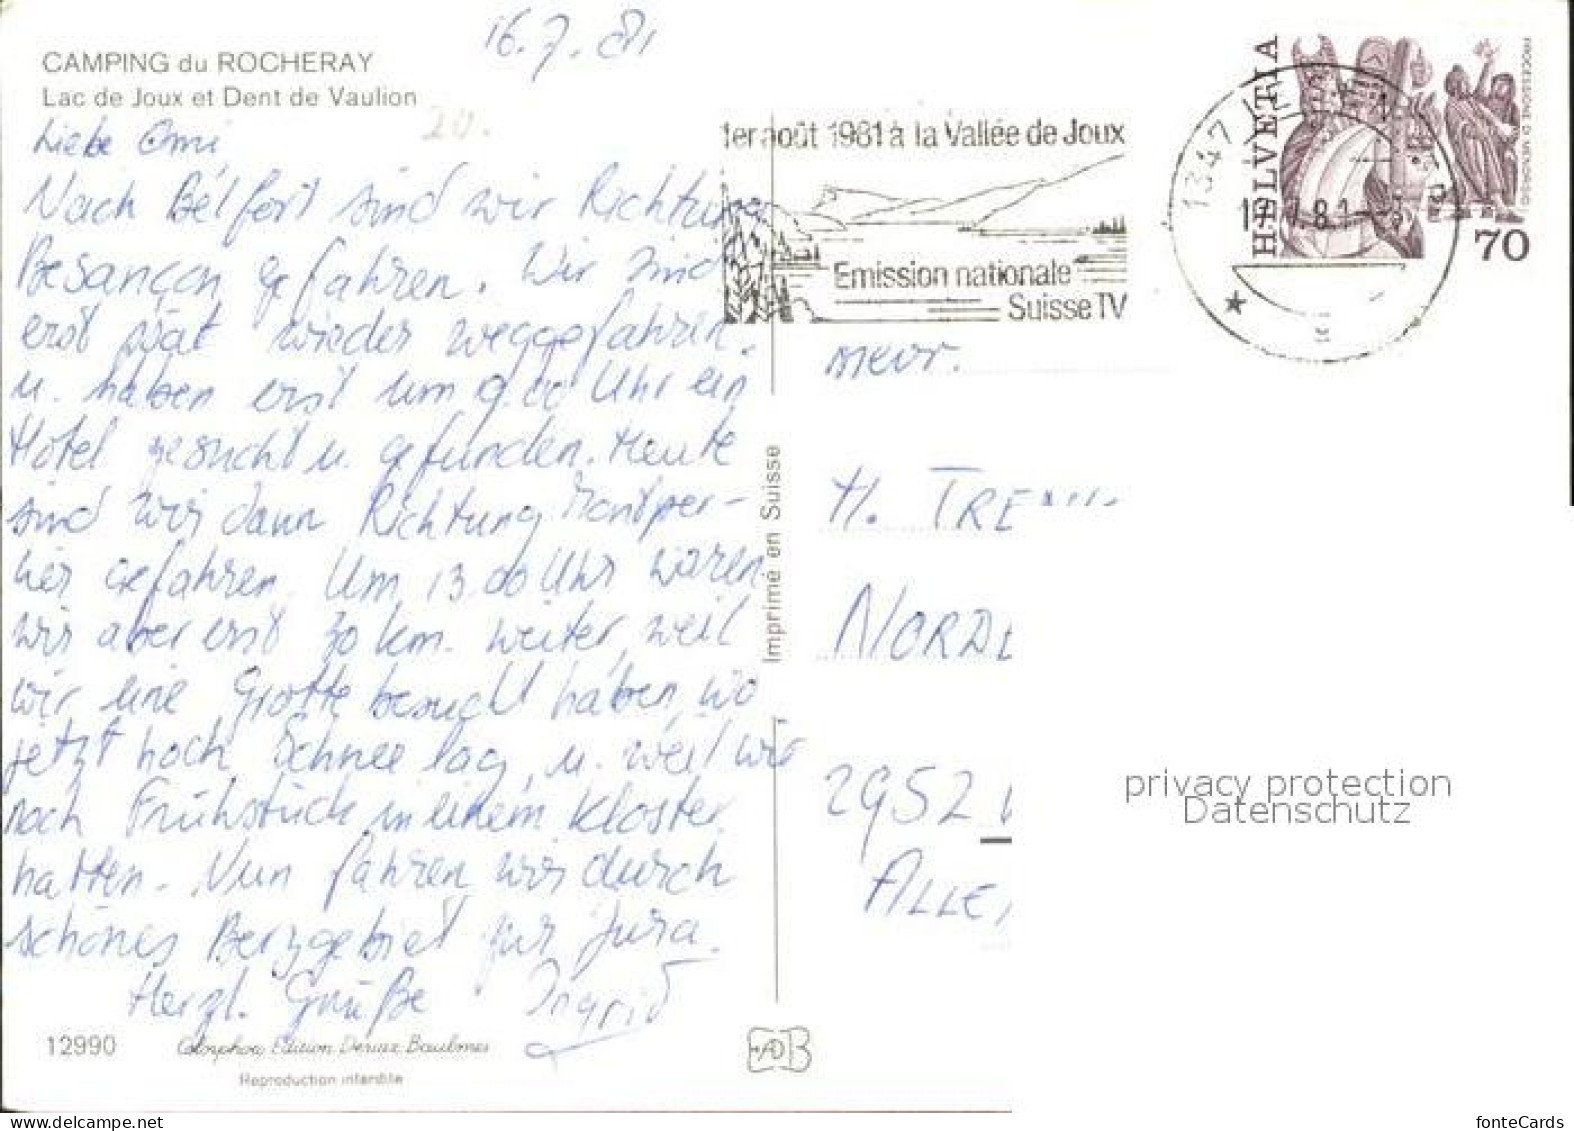 16.7.81
CAMPING du ROCHERAY
Lac de Joux et Dent de Vaulion
20.
Liebe Omi,
Nach Belfort sind wir Richtung
Besançon gefahren. Wir sind
erst spät wieder weggefahren.
u. haben erst um 9.00 Uhr ein
Hotel gesucht u. gefunden. Heute
sind wir dann Richtung Montper-
lier gefahren. Um 13.00 Uhr waren
wir aber erst 30 km. weiter, weil
wir eine Grotte besucht haben, wo
jetzt noch Schnee lag, u. weil wir
noch Frühstück in einem Kloster
hatten. Nun fahren wir durch
schönes Berggebiet für Jura.
Herzl. Grüße Ingrid
12990
Colorphoto Edition Deriaz Baulmes
Reproduction interdite
Imprimé en Suisse
1er août 1981 à la Vallée de Joux
Emission nationale
Suisse TV
1347
HELVETIA
PROCESSIONE DI MENDRISIO
70
Mevr.
H. TRE
NORD
2952
ALLE
privacy protection
Datenschutz
www.delcampe.net
fonteCards